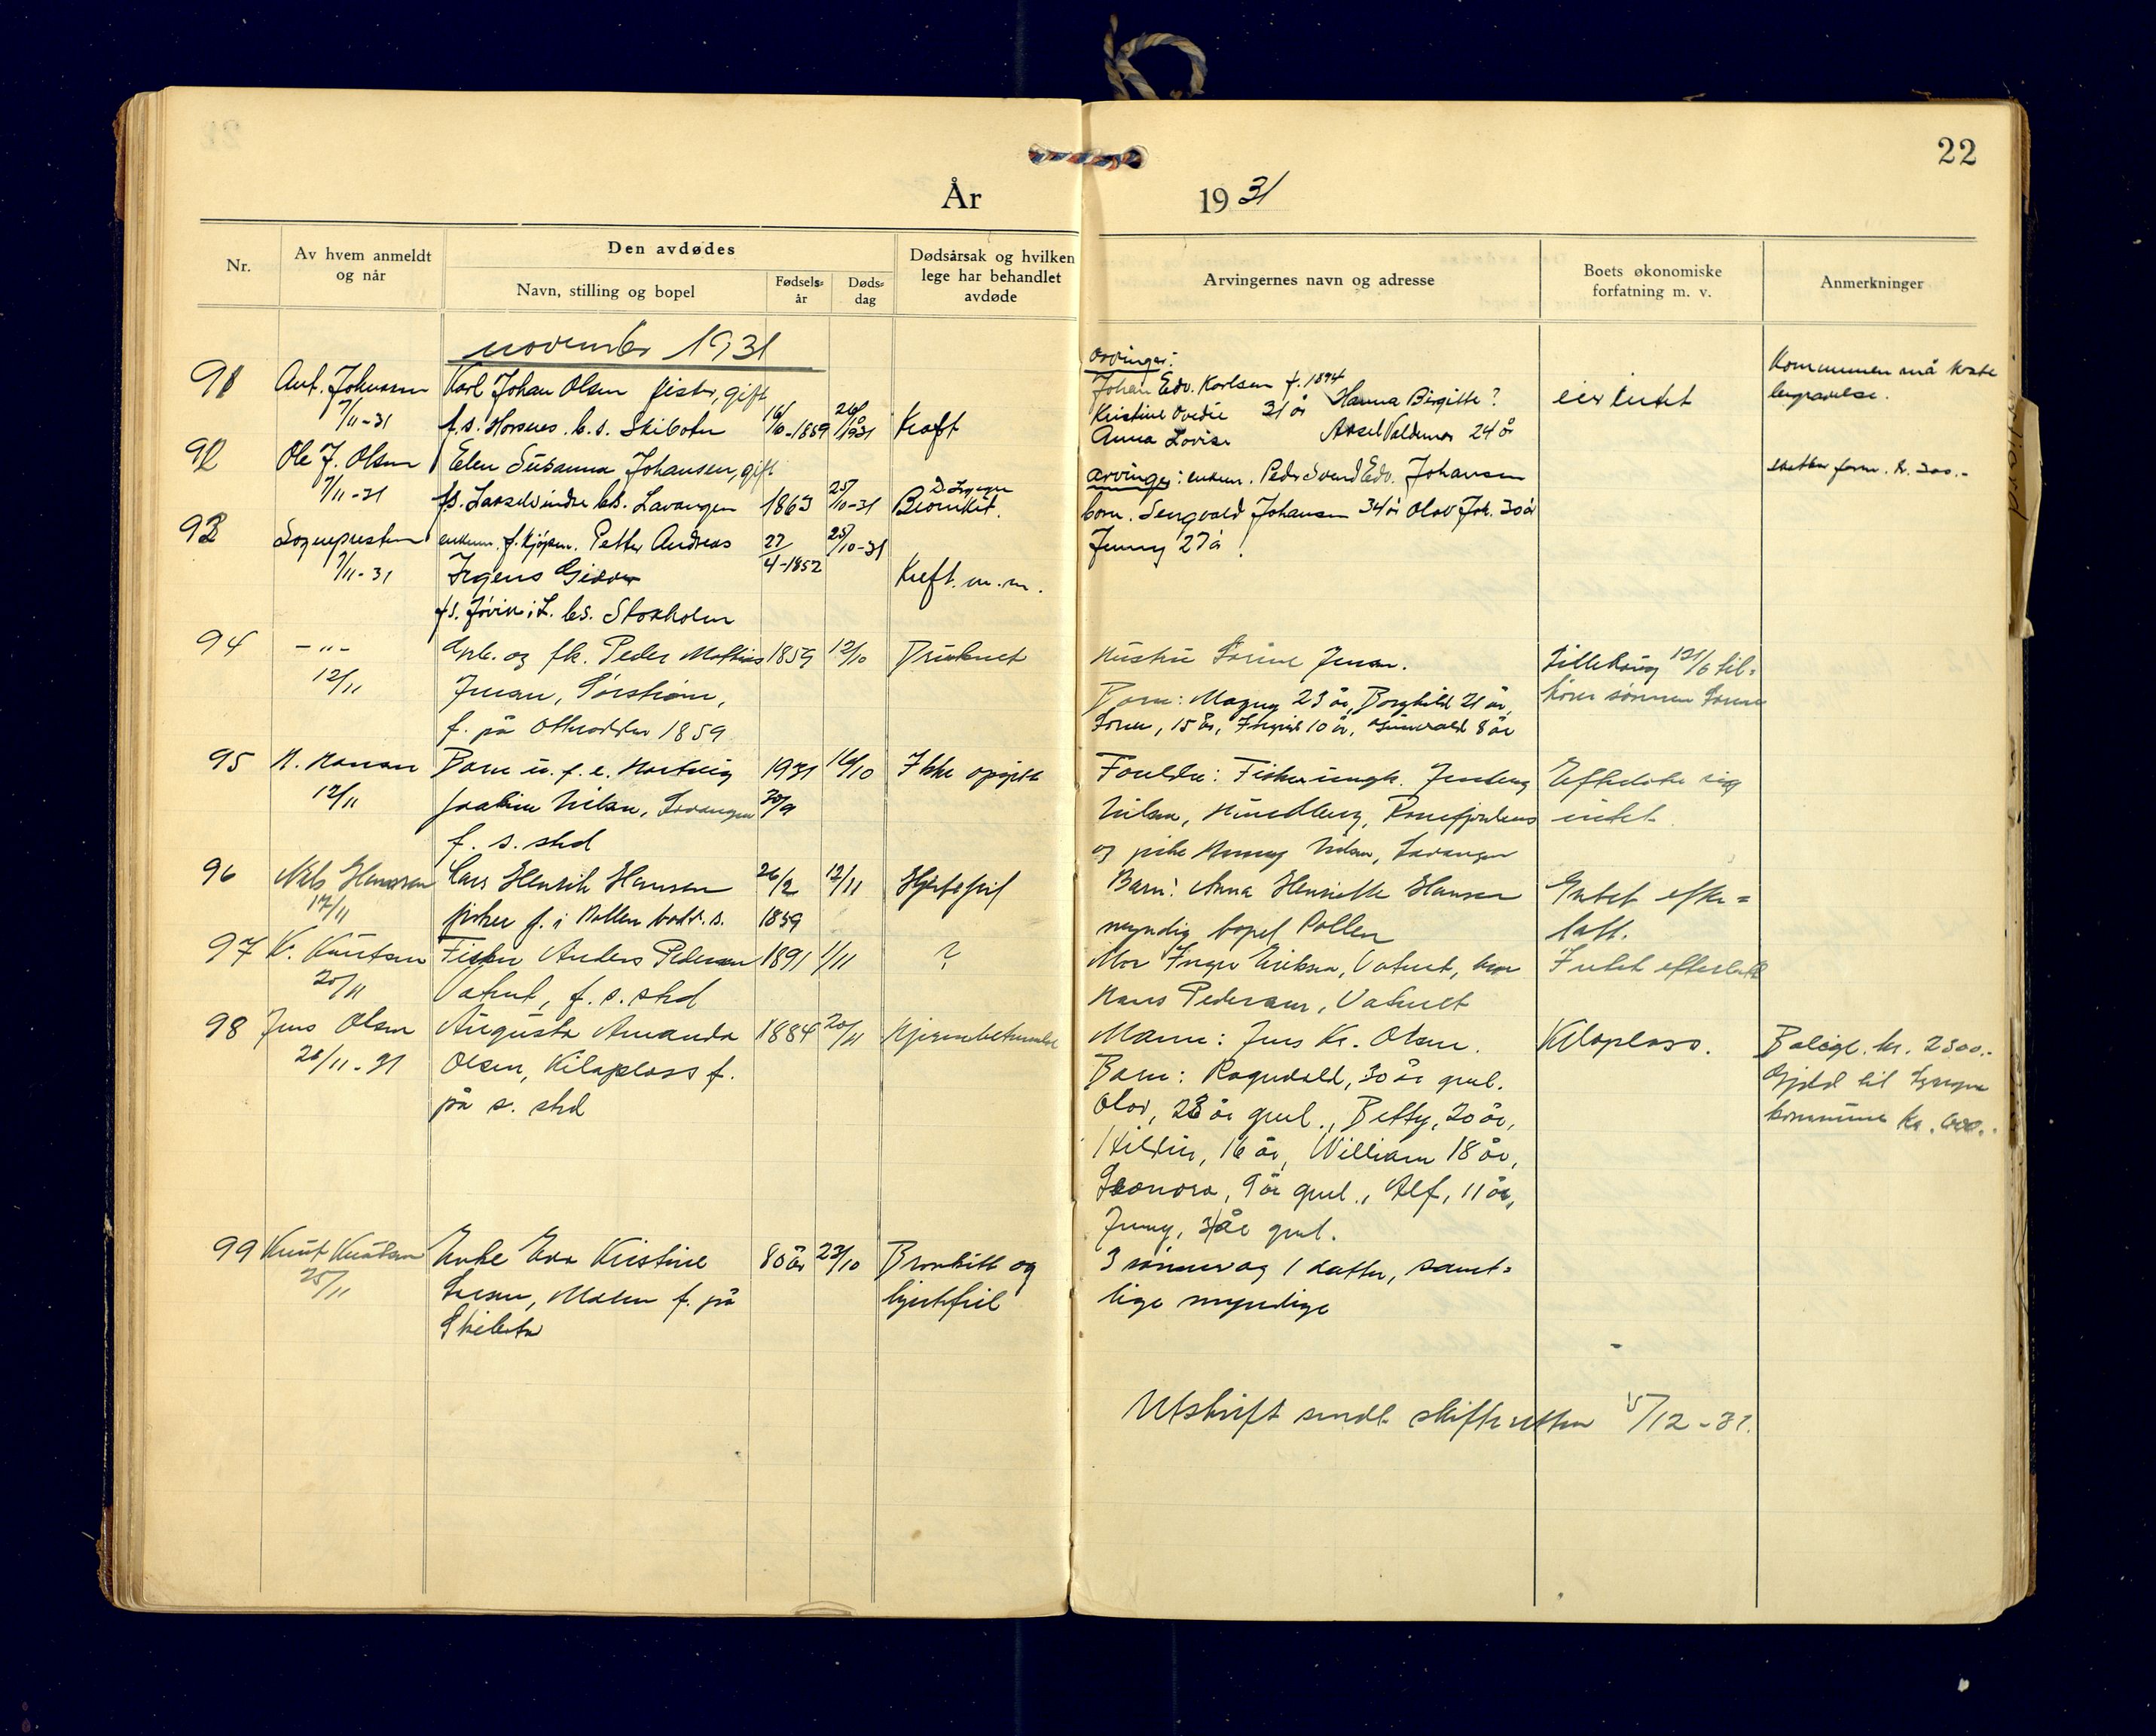 22
År 1931
Nr.
Av hvem anmeldt og når
Den avdødes
Navn, stilling og bopel
Fødselsår
Dødsdag
Dødsårsak og hvilken lege har behandlet avdøde
Arvingernes navn og adresse
Boets økonomiske forfatning m. v.
Anmerkninger
november 1931
91 Ant. Johansen Karl Johan Olsen fisker, gift
7/11-31 f.s. Horsnes. b.s. Skiboten 16/10-1859 26/10 1931 Kræft
Arvinger:
Johan Edv. Karlsen f. 1894
Kristine Ovedie 31 år Hanna Birgitte?
Anna Lovise Aksel Valdemar 24 år
eier intet
Kommunen må koste
begravelse.
92 Ole J. Olsen Elen Susanna Johansen, gift
7/11-31 bs. Lavangen 1863 25/10-31
arvinger: enkem. Peder Svend Edv. Johansen
barn. Johansen 34 år Olav Joh. 30 år
Jenny 27 år
skatter form. kr. 300.-
93 Sognepresten enkem. f. kjøpm. Petter Andreas 27/4-1852 25/10-31
7/11-31 Giæver Kreft. m.m.
fs. Jøvik i L. bs. Stokholm
94 -"- Gpb. og fk. Peder Mathias 1859 12/10 Druknet
12/11 Jensen, Sørstrøm,
f. på 1859
Hustru Sørine Jensen.
Barn: Magny 23 år, Borghild 21 år,
15 år, Ingrid 10 år, 8 år
Lillehaug 121/6 til=
hører sønnen
95 H. Hansen Barn u. f. e. Hartvig 1931 16/10 Ikke opgitt
12/11 Joakim Nilsen, Lavangen 30/9
f. s. sted
Foreldre: Fisker ungk. Jenberg
Nilsen, Ramfjordens
og pike Nilsen, Lavangen
Efterlater sig
intet
96 Nils Hansen Lars Henrik Hansen 26/2 12/11 Hjertefeil
17/11 fisker f. i Pollen bodd. s. 1859
Barn: Anna Henriette Hansen
myndig bopel Pollen
Intet efter=
latt.
97 K. Knutsen Fisker Anders Pedersen 1891 1/11 ?
20/11 Vatnet, f. s. sted
Mor Inger Eriksen, Vatnet, bror
Hans Pedersen, Vatnet
Intet efterlatt
98 Jens Olsen Augusta Amanda 1884 20/11 Hjernebetennelse
26/11-31 Olsen, Kilaplass f.
på s. sted
Mann: Jens Kr. Olsen.
Barn: Ragnvald, 30 år gml.
Olav, 23 år gml., Betty, 20 år,
Hildur, 16 år, William 18 år,
Leonora, 9 år gml., Alf, 11 år,
Jenny, 3 år gml.
Kilaplass.
Boligl. kr. 2300.-
Gjeld til Lyngen
kommune kr. 600.-
99 Knut Knutsen Enke Eva Kristine 80 år 23/10 Bronkitt og
25/11 Larsen, Malen f. på hjertefeil
Skiboten
3 sønner og 1 datter, samt=
lige myndige
Utskrift sendt skifteretten 15/12-31.